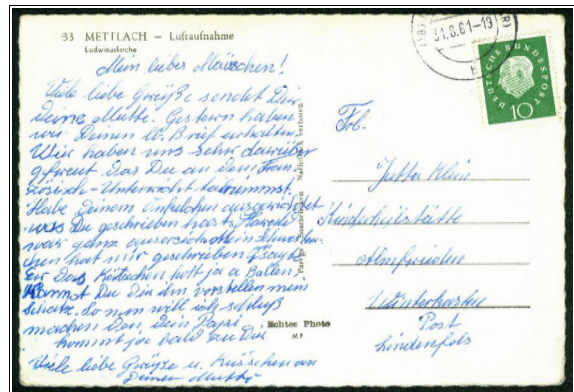 33 METTLACH — Luftaufnahme
Ludwinuskirche
Mein liebes Mäuschen!
Viele liebe Grüße sendet Dir
Deine Mutti. Gestern haben
wir Deinen lb. Brief erhalten.
Wir haben uns sehr darüber
gefreut Das Du an dem Fran
zösisch-Unterricht teilnimmst.
Habe Deinem ausgerichtet
was Du geschrieben hast. Harald
war ganz Mein
chen hat mir geschrieben
Er Das Kätzchen holt ja Ballen,
Kannst Du Dir ihn vorstellen mein
Schatz. So nun will ich schluß
machen Den Dein Papi
kommt ja bald zu Dir
Viele liebe Grüße u. Küsschen von
Deiner Mutti
Nachdruck verboten
Echtes Photo
31.8.61-19
DEUTSCHE BUNDESPOST
10
Frl.
Jutta Klein
Kinderheilstätte
Almfrieden
Winterkasten
Post
Lindenfels